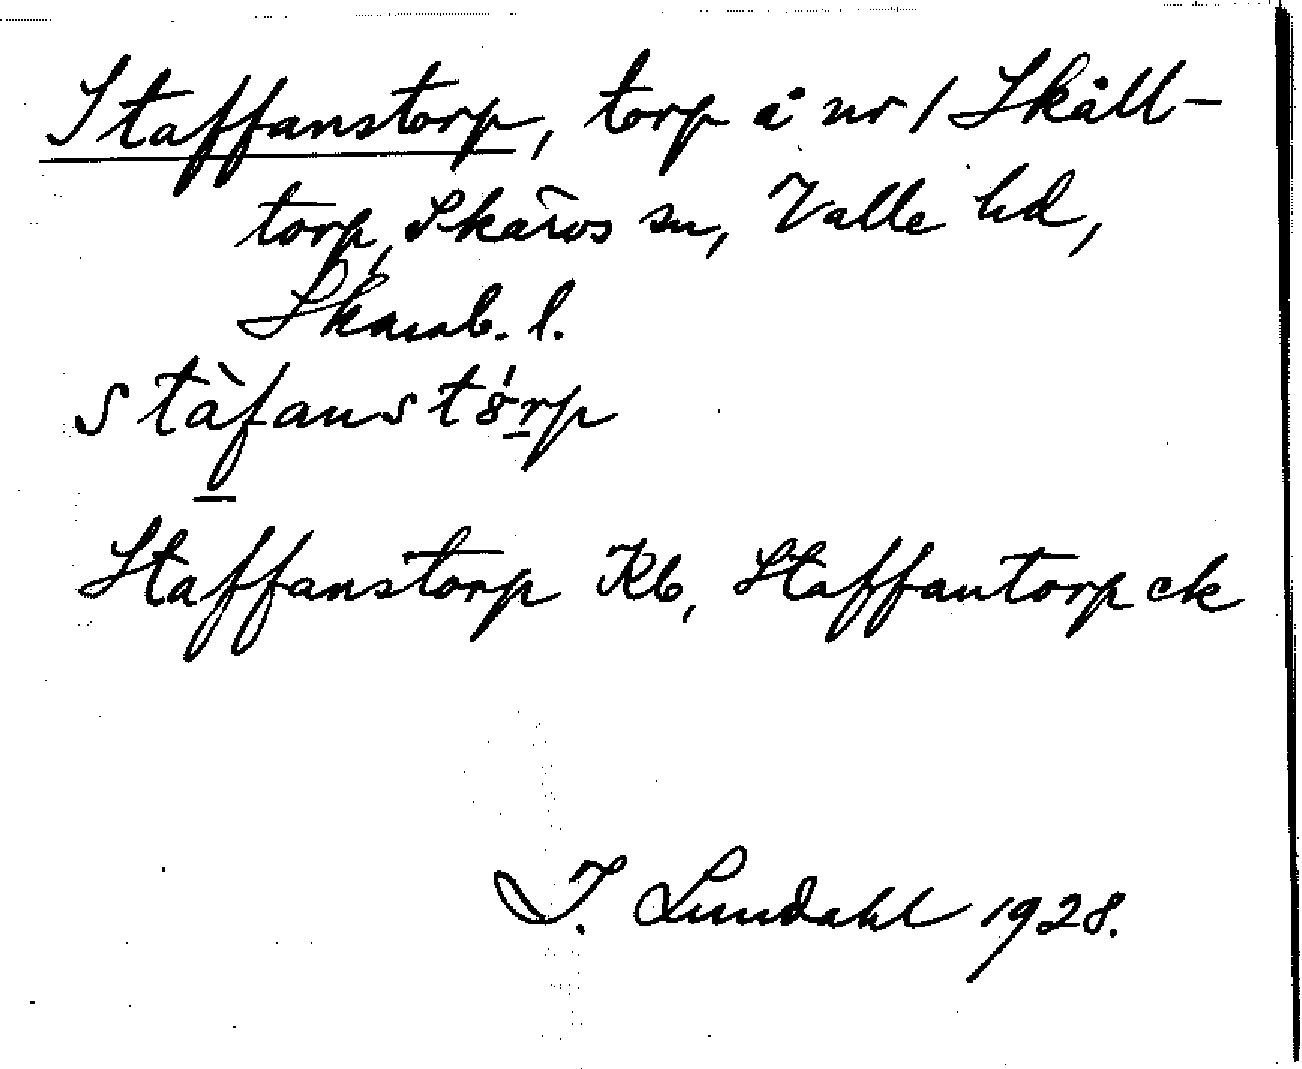 Staffanstorp, torp å nr 1 Skåll-
torp, Skärvs sn, Valle hd,
Skarab. l.
stàfanstȣ́rp
Staffanstorp Kb, Staffantorp ek
I. Lundahl 1928.